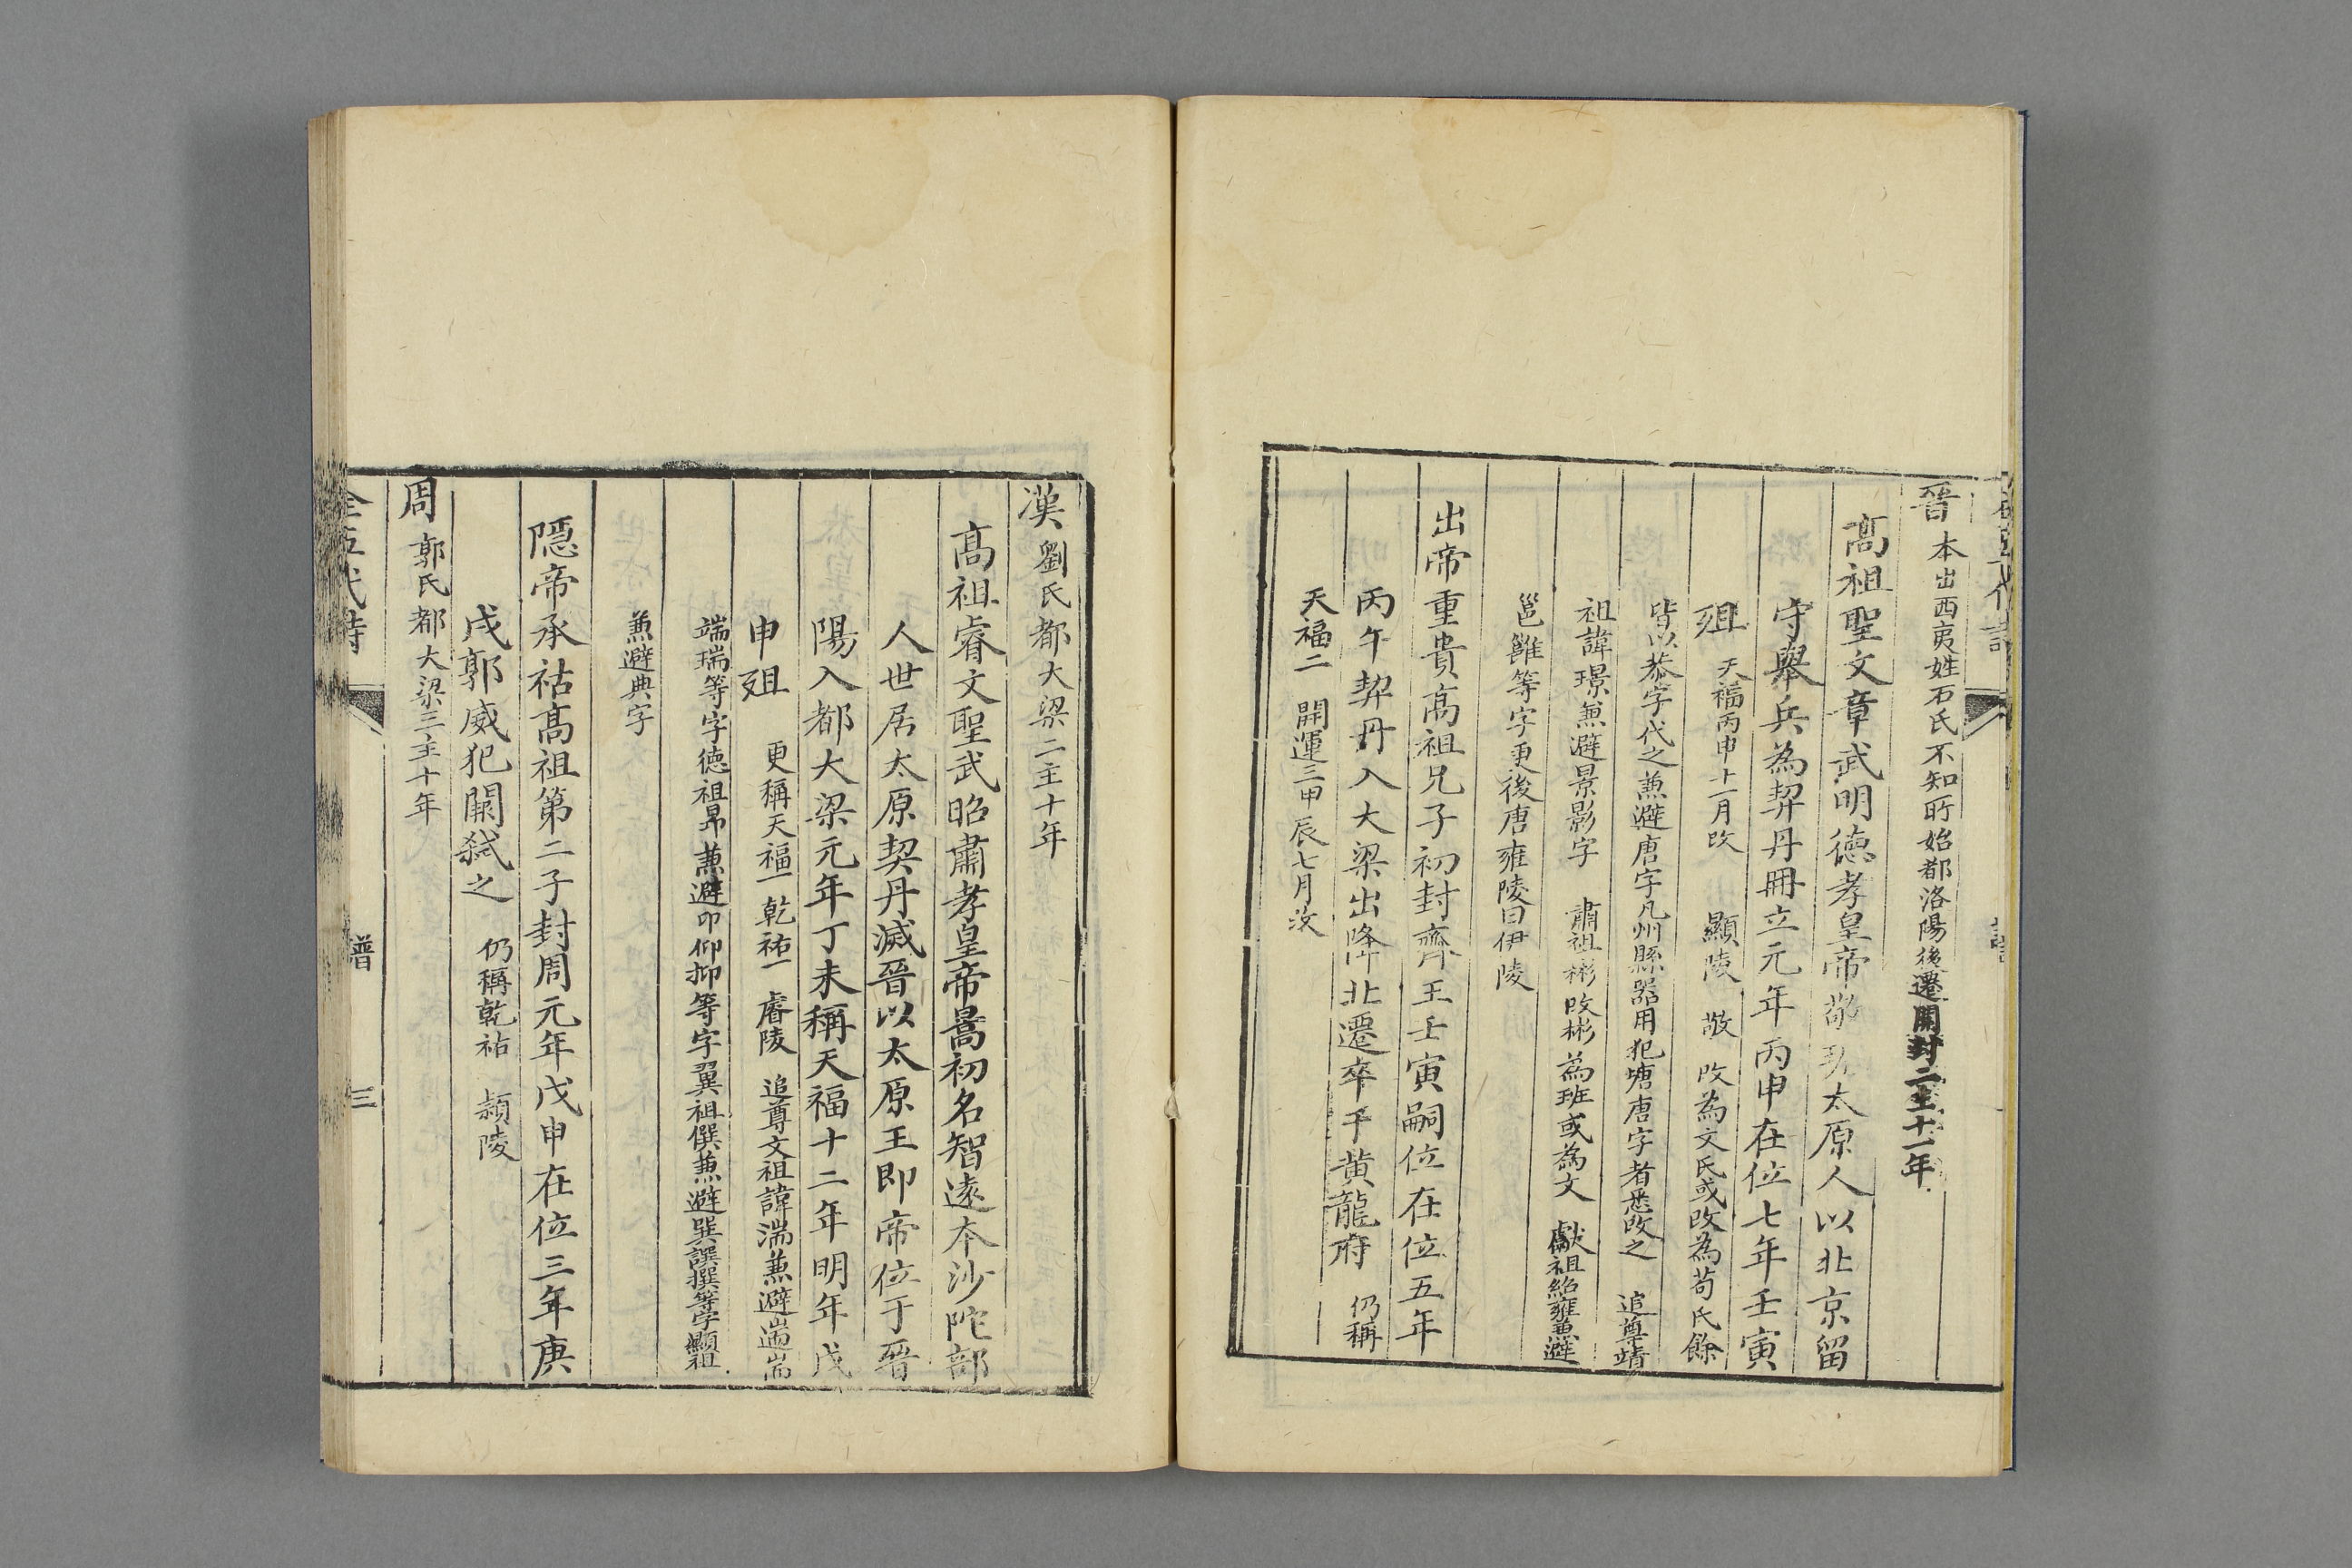 晉 本出西夷姓石氏不知所始都洛陽後遷開封二主十一年
髙祖聖文章武明德孝皇帝敬瑭太原人以北京留
守舉兵為契丹冊立元年丙申在位七年壬寅
殂 天福丙申十一月改 顯陵 敬 改為文氏或改為苟氏餘
皆以恭字代之兼避唐字凡州縣器用犯塘唐字者悉改之 追尊靖
祖諱璟兼避景影字 肅祖彬改彬為班或為文 獻祖紹雍兼避
邕雝等字更後唐雍陵曰伊陵
出帝重貴髙祖兄子初封齊王壬寅嗣位在位五年
丙午契丹入大梁出降北遷卒于黄龍府 仍稱
天福二 開運三甲辰七月改
漢 劉氏都大梁二主十年
髙祖睿文聖武昭肅孝皇帝暠初名智遠本沙陀部
人世居太原契丹滅晉以太原王即帝位于晉
陽入都大梁元年丁未稱天福十二年明年戊
申殂 更稱天福一 乾祐一 睿陵 追尊文祖諱湍兼避遄耑
端瑞等字德祖昻兼避卬仰抑等字翼祖僎兼避巽譔撰等字顯祖
兼避典字
隱帝承祜髙祖第二子封周元年戊申在位三年庚
戌郭威犯闕弑之 仍稱乾祐 潁陵
周 郭氏都大梁三主十年
全五代詩 譜 三